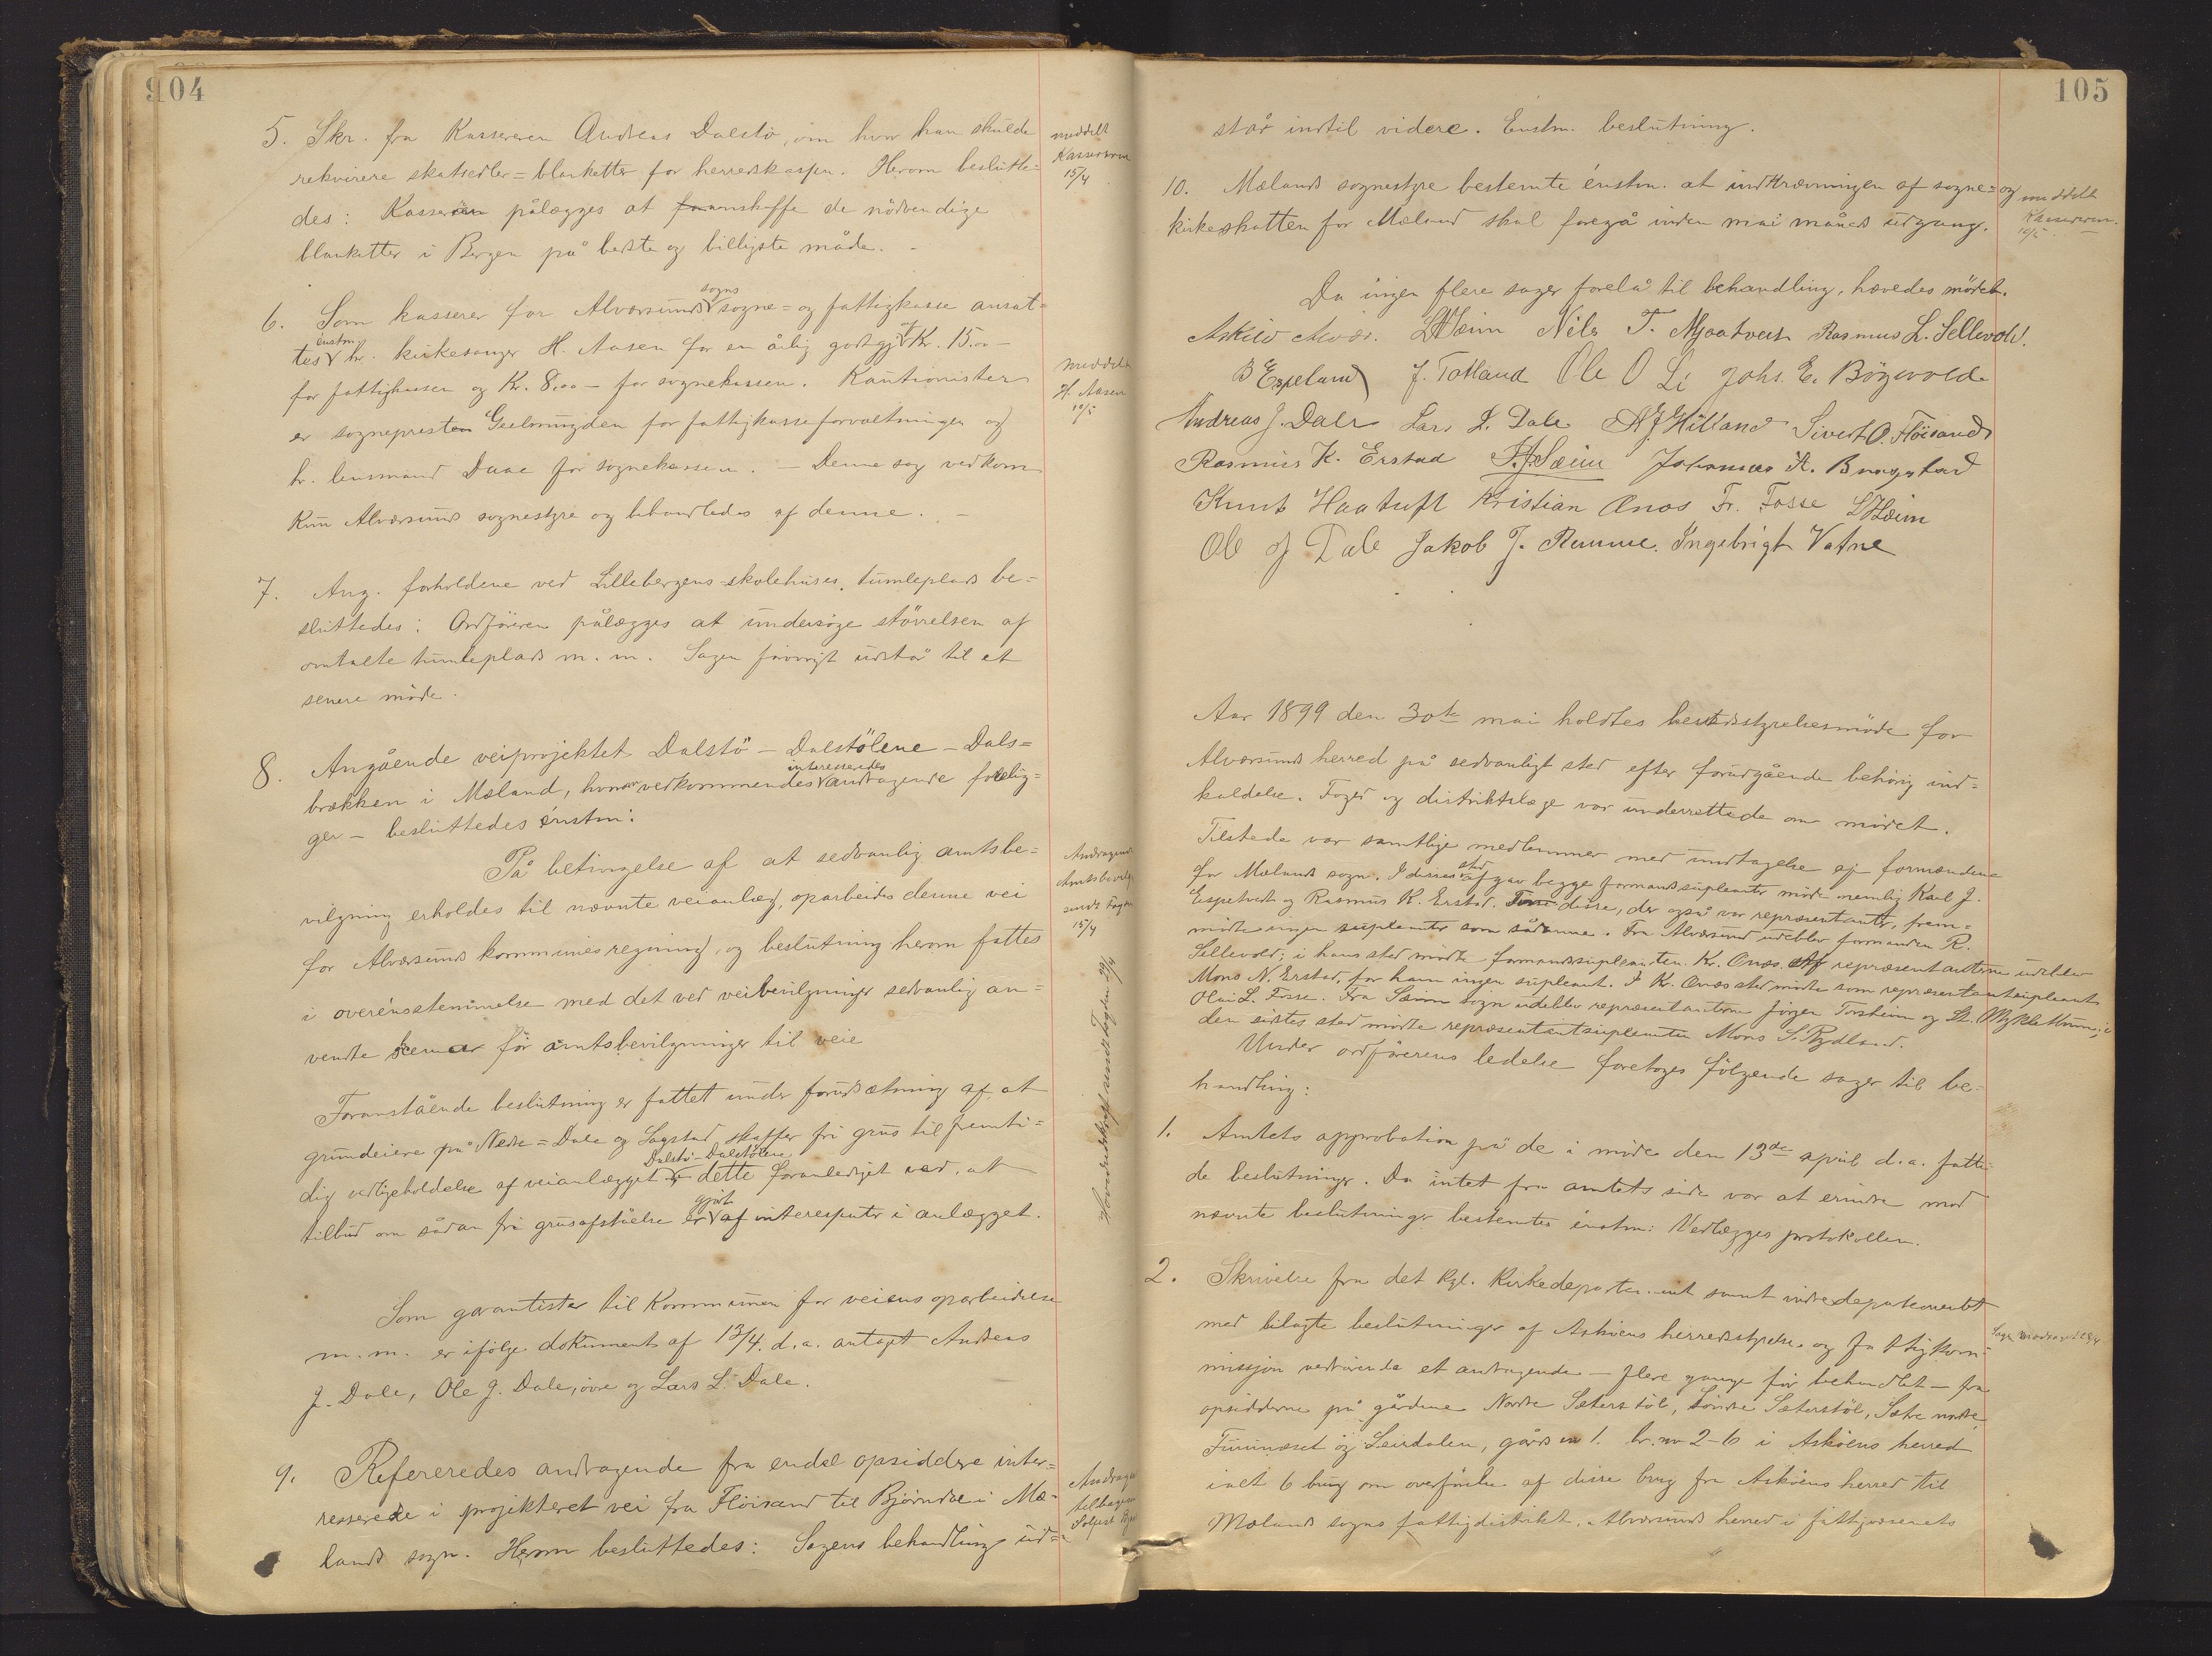 104
5. Skr. fra Kassereren Andreas Dalstö, om hvor han skulde
rekvirere skatsedler=blanketter for herredskassen. Herom beslutte-
des: Kassereren pålægges at fra anskaffe de nödvendige
blanketter i Bergen på bedste og billigste måde. -
meddelt
Kassereren
15/4
6. Som kasserer for Alværsunds sogns sogne= og fattigkasse ansat=
tes énstm. hr. kirkesanger H. Aasen for en årlig godtgj. af Kr. 15.00 -
for fattigkassen og Kr. 8.00 - for sognekassen. Kautionister
er sognepresten Geelmuyden for fattigkasseforvaltningen og
hr. lensmand Daae for sognekassen. - Denne sag vedkom
kun Alværsunds sognestyre og behandledes af denne. -
meddelt
H. Aasen
10/5
7. Ang. forholdene ved Lillebergens skolehuses tumleplads be=
sluttedes: Ordföreren pålægges at undersöge störrelsen af
omtalte tumleplads m. m. Sagen forövrigt udstår til et
senere möde.
8. Angående veiprojektet Dalstö - Dalstölene - Dals=
brækken i Mæland, hvorom vedkommendes interesseredes andragende forelig=
ger - besluttedes énstm:
På betingelse af at sedvanlig amtsbe=
vilgning erholdes til nævnte veianlæg, oparbeides denne vei
for Alværsunds kommunes regning, og beslutning herom fattes
i overénsstemmelse med det ved veibevilgninger sedvanlig an=
vendte skema for amtsbevilgninger til veie
Andragende
Amtsbevilg
sendt Fogden
15/4
Foranstående beslutning er fattet under forudsætning af, at
grundeiere på Nedre=Dale og Sagstad skaffer fri grus til fremti=
dig vedligeholdelse af veianlægget Dalstö-Dalstölene - dette foranlediget ved, at
tilbud om sådan fri grusafståelse er gjort af interessenter i anlægget.
Som garantister til Kommunen for veiens oparbeidelse
m. m. er ifölge dokument af 13/4. d.a. antaget Andreas
J. Dale, Ole J. Dale, övre og Lars L. Dale.
9. Refereredes andragende fra endel opsiddere inter=
resserede i projekteret vei fra Flöisand til Björndal i Mæ=
lands sogn. Herom besluttedes: Sagens behandling ud=
105
står indtil videre. Enstm. beslutning.
10. Mælands sognestyre bestemte énstm. at inddrævningen af sogne= og
kirkeskatten for Mæland skal foregå inden mai måneds udgang.
meddelt
Kassereren.
10/5
Da ingen flere sager forelå til behandling, hævedes mödet.
Askild Alvær. L H Seim Nils T. Mjaatvedt Rasmus L. Sellevold.
B Espeland J. Totland Ole O Li Johs. E. Bögevold
Andreas J. Dale Lars L. Dale A J Hilland Sivert O. Flöisand
Rasmus K. Erstad Johannes A. Bragstad
Knut Haatuft Kristian Onos Fr. Fosse
Ole J Dale Jakob J. Remme. Ingebrigt Vatne
Aar 1899 den 30te mai holdtes herredsstyrelsesmöde for
Alværsunds herred på sedvanligt sted efter forudgående behörig ind=
kaldelse. Foged og distriktslæge var underrettede om mödet.
Tilstede var samtlige medlemmer med undtagelse af formændene
for Mælands sogn. I disses sted afgav begge formandssupleanter möde nemlig Karl J.
Espetvedt og Rasmus K. Erstad. For disse, der også var repræsentanter, frem=
mödte ingen supleanter som sådanne. Fra Alværsund udeblev formanden R.
Sellevold; i hans sted mödte formandssupleanten Kr. Onos. Af repræsentanterne udeblev
Mons N. Erstad, for ham ingen supleant. I K. Onos sted mödte som repræsentantsupleant
Olai L. Fosse. Fra Sæim sogn udeblev repræsentanterne Jörgen Torsheim og St. Mykletun; i
den sidstes sted mödte repræsentantsupleanten Mons S. Rydland.
Under ordförerens ledelse foretoges fölgende sager til be=
handling:
1. Amtets approbation på de i möde den 13de april d.a. fatte-
de beslutninger. Da intet fra amtets side var at erindre mod
nævnte beslutninger bestemtes énstm: Vedlægges protokollen.
2. Skrivelse fra det Kgl. Kirkedepartement samt indredepartementet
med bilagte beslutninger af Asköens herredsstyrelse og fattigkom=
missjon vedrörende et andragende - flere gange för behandlet - fra
opsidderne på gårdene Nordre Sæterstöl, Söndre Sæterstöl, Sætre nedre
Furuneset og Leirdalen, gårds no 1. br. no 2-6 i Asköens herred
ialt 6 brug om overförelse af disse brug fra Asköens herred til
Mælands sogns fattigdistrikt, Alværsunds herred i fattigvæsenets